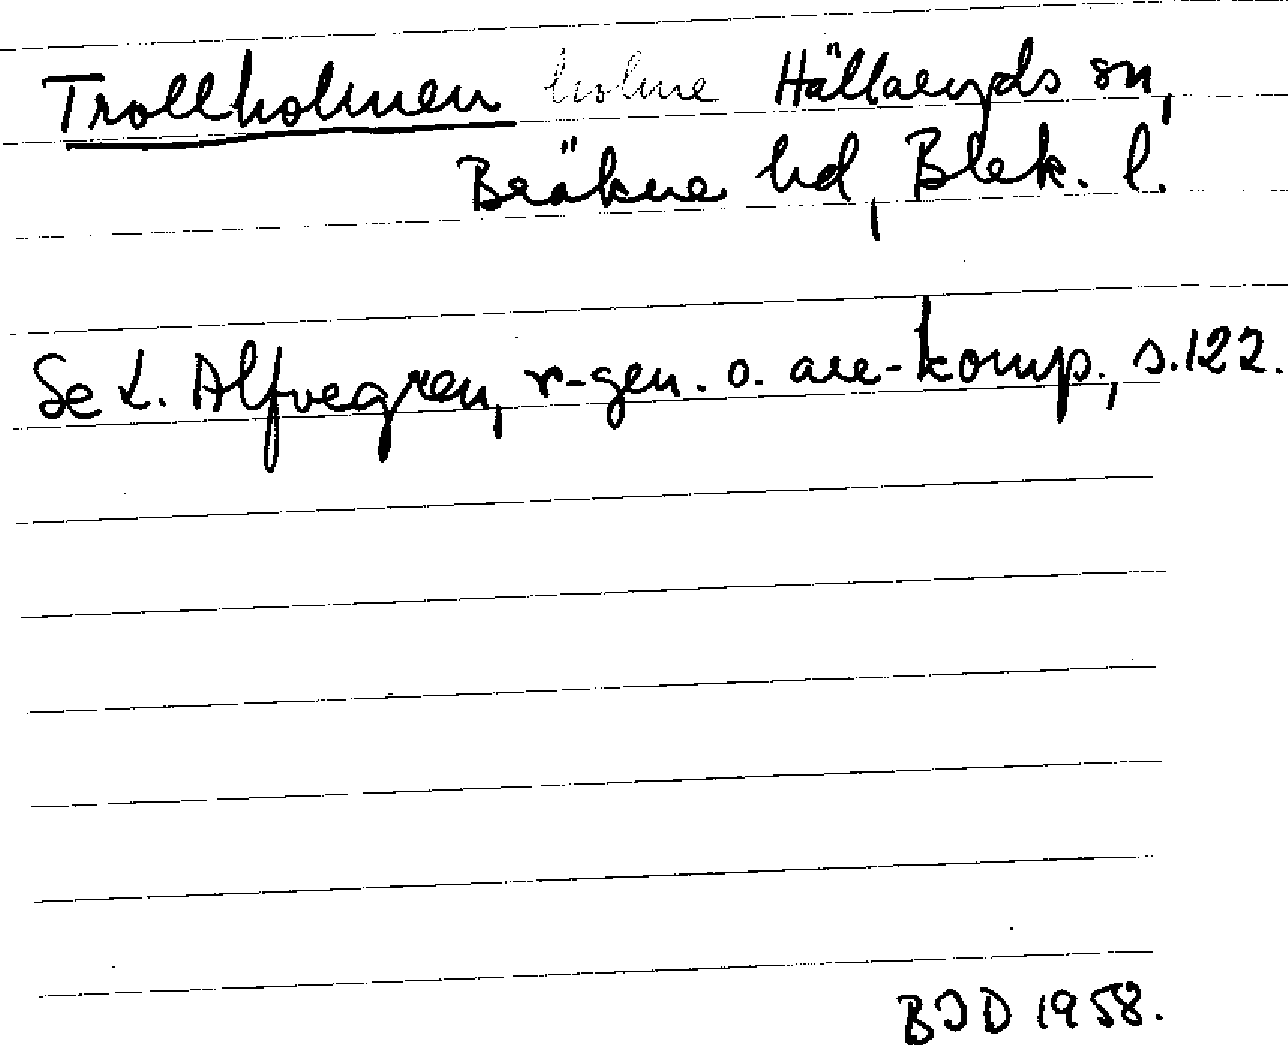 Trollholmen holme Hällaryds sn,
Bräkne hd, Blek. l.
Se L. Alfvegren, r-gen. o. are-komp., s. 122.
BJD 1958.